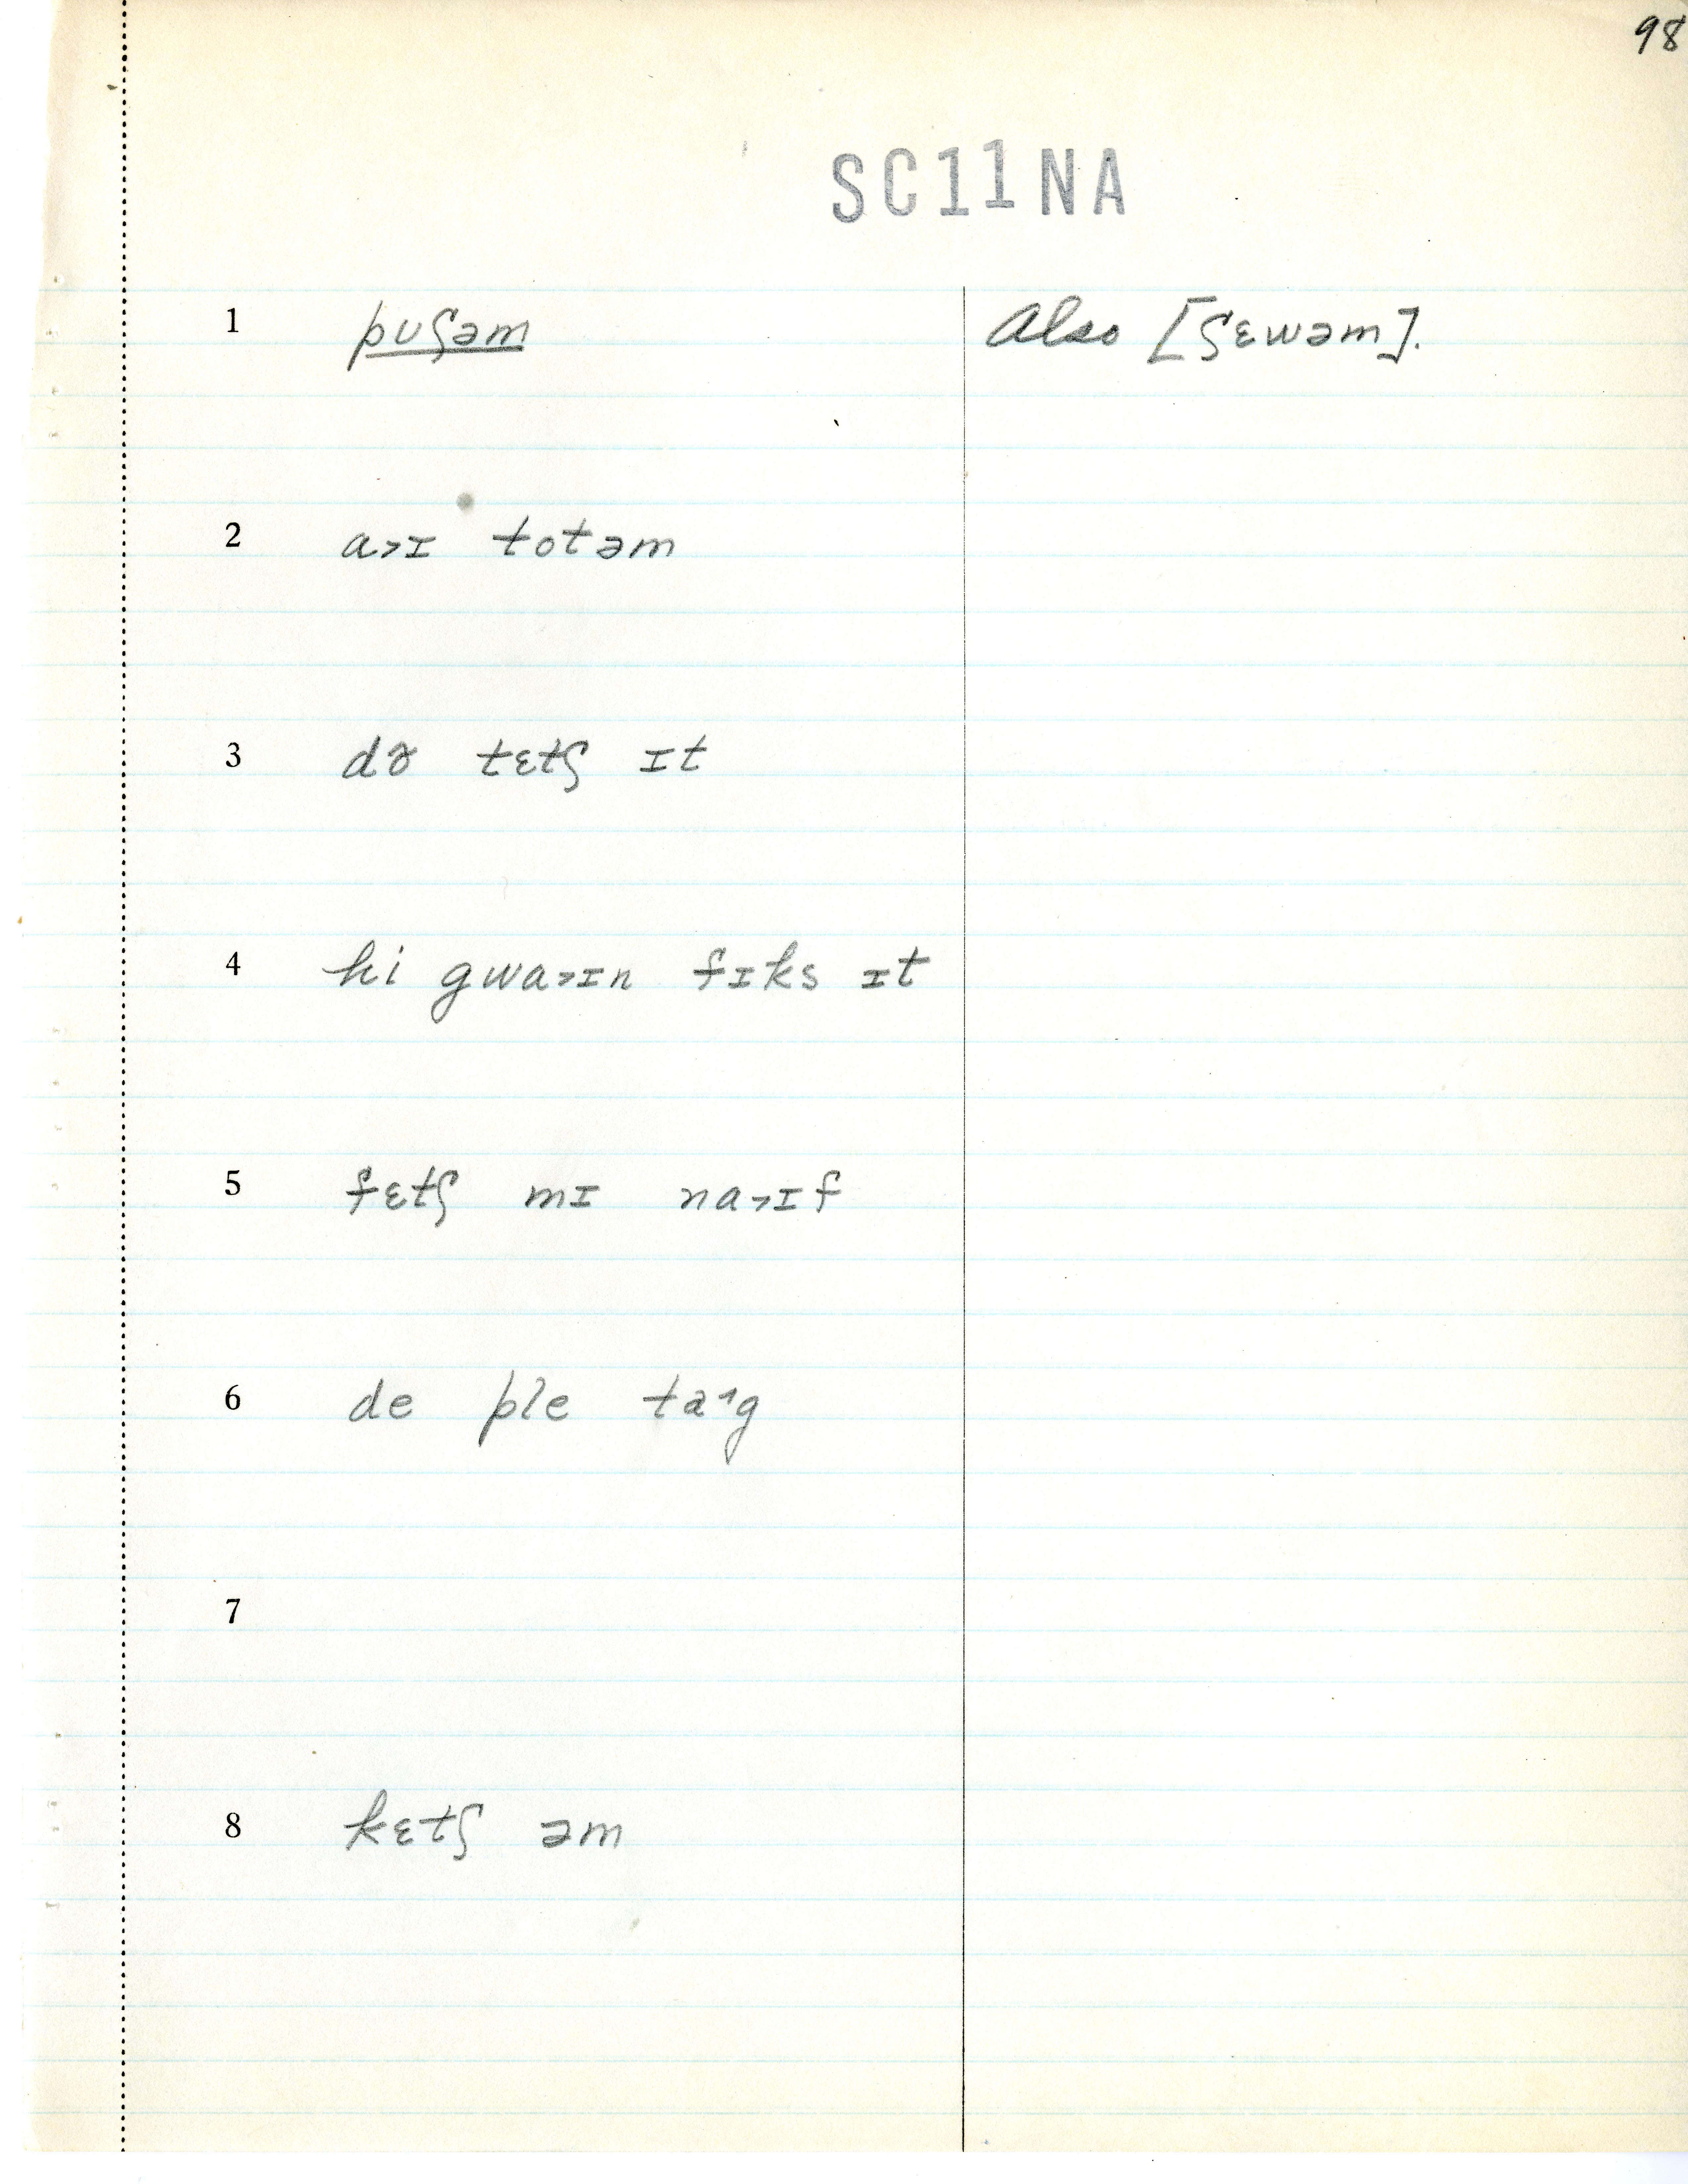 98
SC11NA
1 puʃəm Also [ʃɛwəm].
2 a˃ɪ totəm
3 dɚ tɛtʃ ɪt
4 hi gwa˃ɪn fɪks ɪt
5 fɛtʃ mɪ na˃ɪf
6 de ple
7
8 kɛtʃ əm